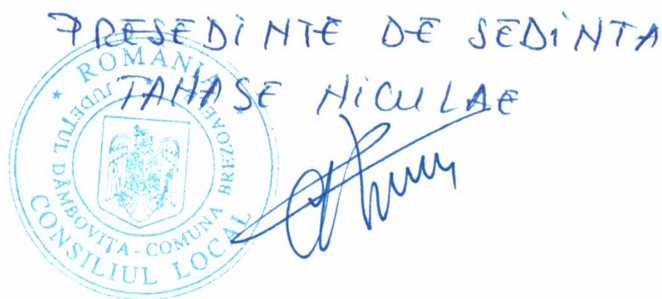 PRESEDINTE DE SEDINTA
TANASE NICULAE
* ROMANIA *
JUDEŢUL DÂMBOVIŢA - COMUNA BREZOAELE
CONSILIUL LOCAL